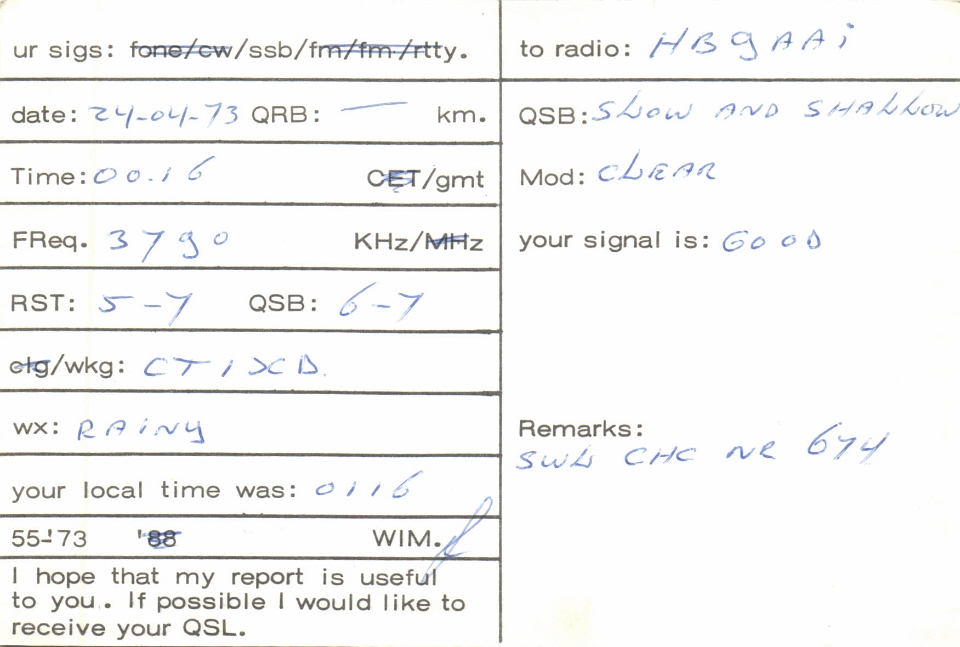 ur sigs: fone/cw/ssb/fm/fm-/rtty.
date: 24-04-73 QRB: — km.
Time: 00.16 CET/gmt
FReq. 3790 KHz/MHz
RST: 5-7 QSB: 6-7
clg/wkg: CT1XCD.
wx: RAiNY
your local time was: 0116
55-'73 '88 WIM.
I hope that my report is useful
to you.. If possible I would like to
receive your QSL.
to radio: HB9AAi
QSB: SLOW AND SHALLOW
Mod: CLEAR
your signal is: GOOD
Remarks:
SWL CHC NR 674